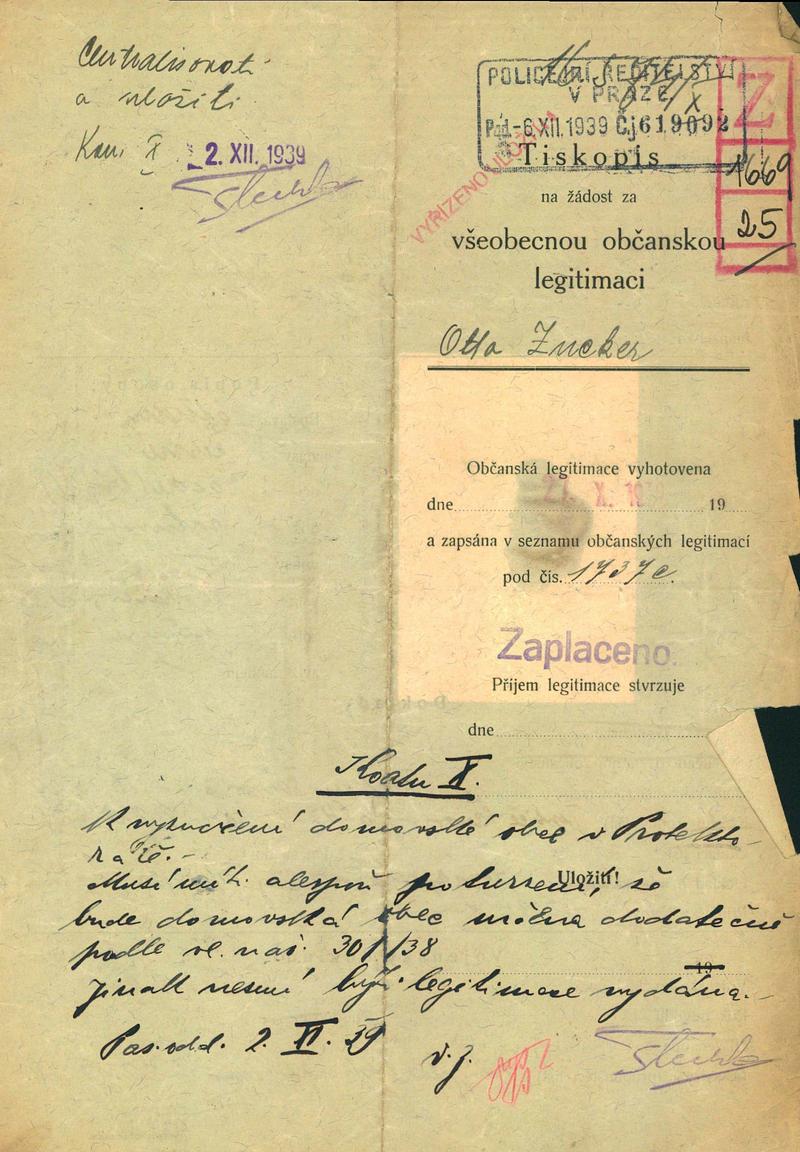 Centralisovati
a uložiti
Kom. X
2. XII. 1939
POLICEJNÍ ŘEDITELSTVÍ
V PRAZE
-6.XII.1939 Čj 619092
VYŘÍZENO
Z
1669
25
Tiskopis
na žádost za
všeobecnou občanskou
legitimaci
Otto Zucker
Občanská legitimace vyhotovena
dne 19
a zapsána v seznamu občanských legitimací
pod čís. 1737c.
Zaplaceno.
Příjem legitimace stvrzuje
dne
X.
K vyznačení domovské obce v Protekto-
rátě.-
Musí míti alespoň potvrzení, že
Uložiti!
bude domovská obec určena dodatečně
podle vl. nař. 301/38
19
Jinak nesmí býti legitimace vydána.-
Pas. odd. 2. XI. 39
v. z.